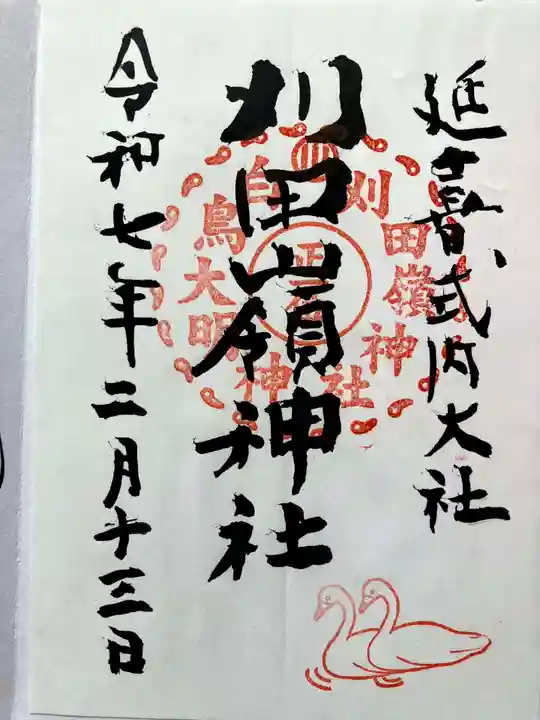 延喜式内大社
刈田嶺神社
令和七年二月十三日
刈田嶺神社
白鳥大明神
正一